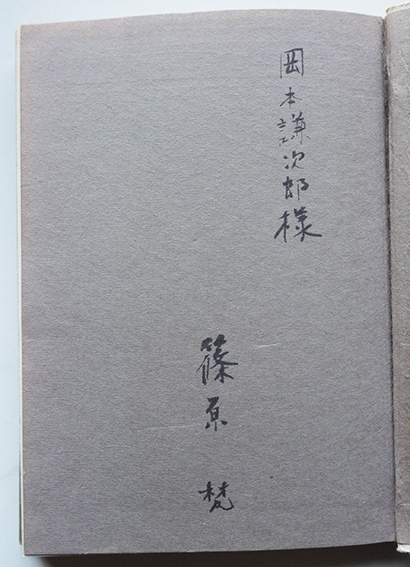 岡本謙次郎様
篠原梵